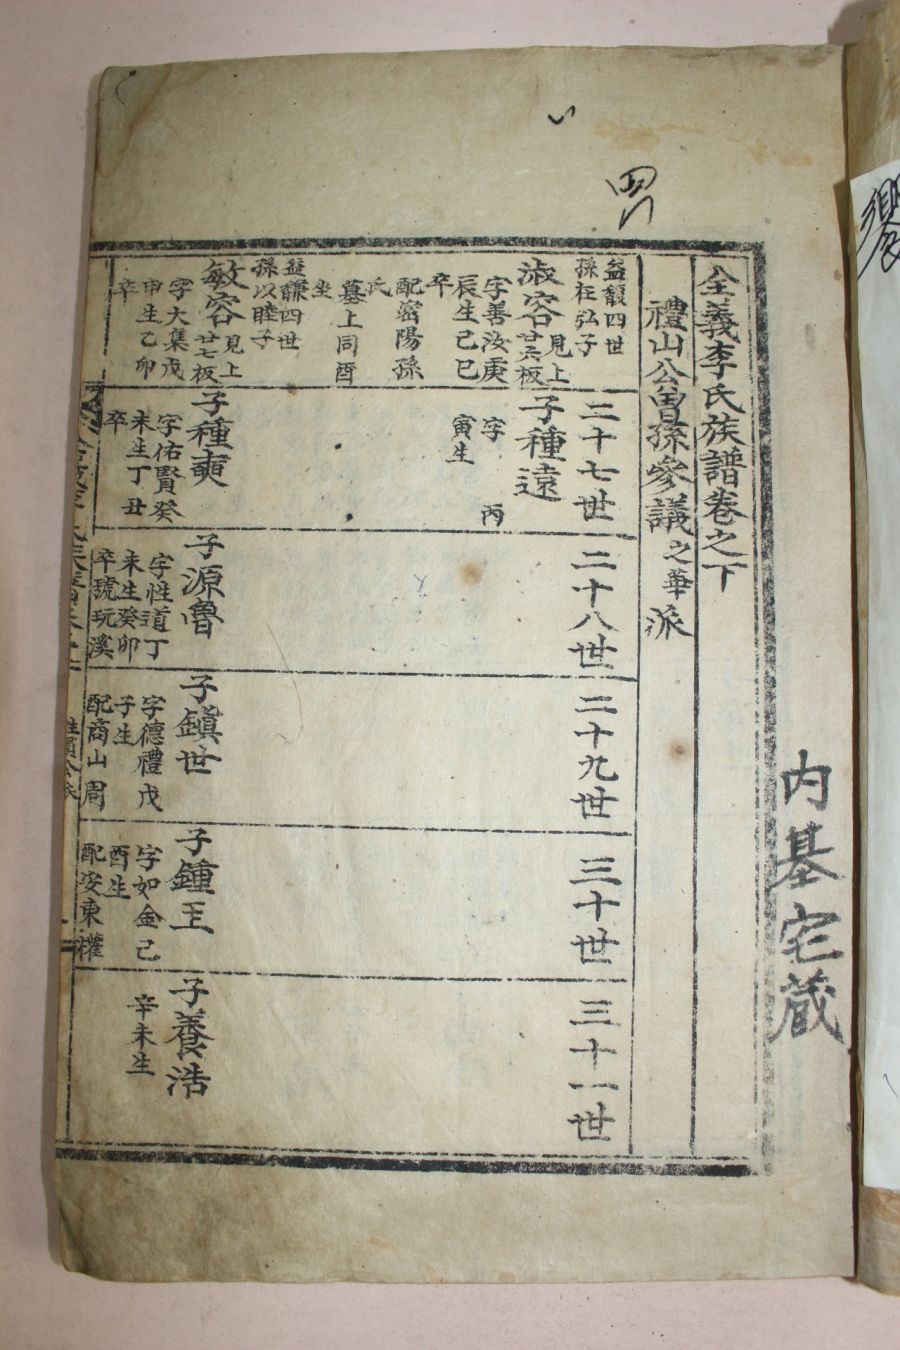 全義李氏族譜卷之下
禮山公曾孫參議之華派
益馥四世
孫枉弘子
淑容見上廿六板
字善汝庚
辰生己巳
卒
配密陽孫
氏
墓上同酉
坐
益謙四世
孫以睦子
敏容見上廿七板
字大集戊
申生乙卯
卒
二十七世
子種遠
字 丙
寅生
子種奭
字佑賢癸
未生丁丑
卒
二十八世
子源魯
字性道丁
未生癸卯
卒號玩溪
二十九世
子鎭世
字德禮戊
子生
配商山周
三十世
子鍾王
字如金己
酉生
配安東權
三十一世
子養浩
辛未生
内基宅蔵